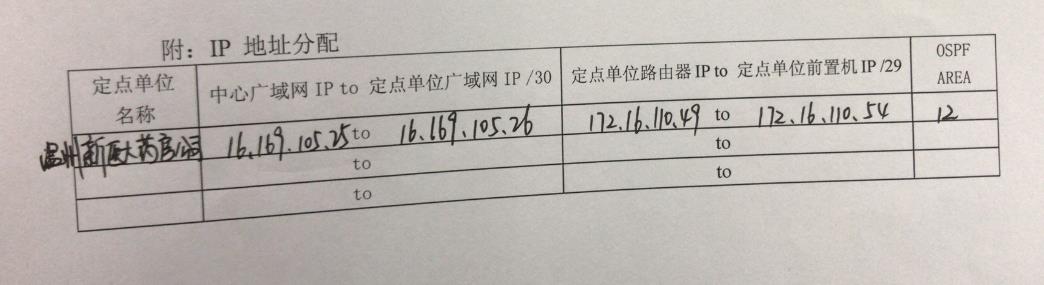 附：IP 地址分配
定点单位名称 中心广域网 IP to 定点单位广域网 IP /30 定点单位路由器 IP to 定点单位前置机 IP /29 OSPF AREA
温州新 大药房公司 16.169.105.25 to 16.169.105.26 172.16.110.49 to 172.16.110.54 12
to to
to to